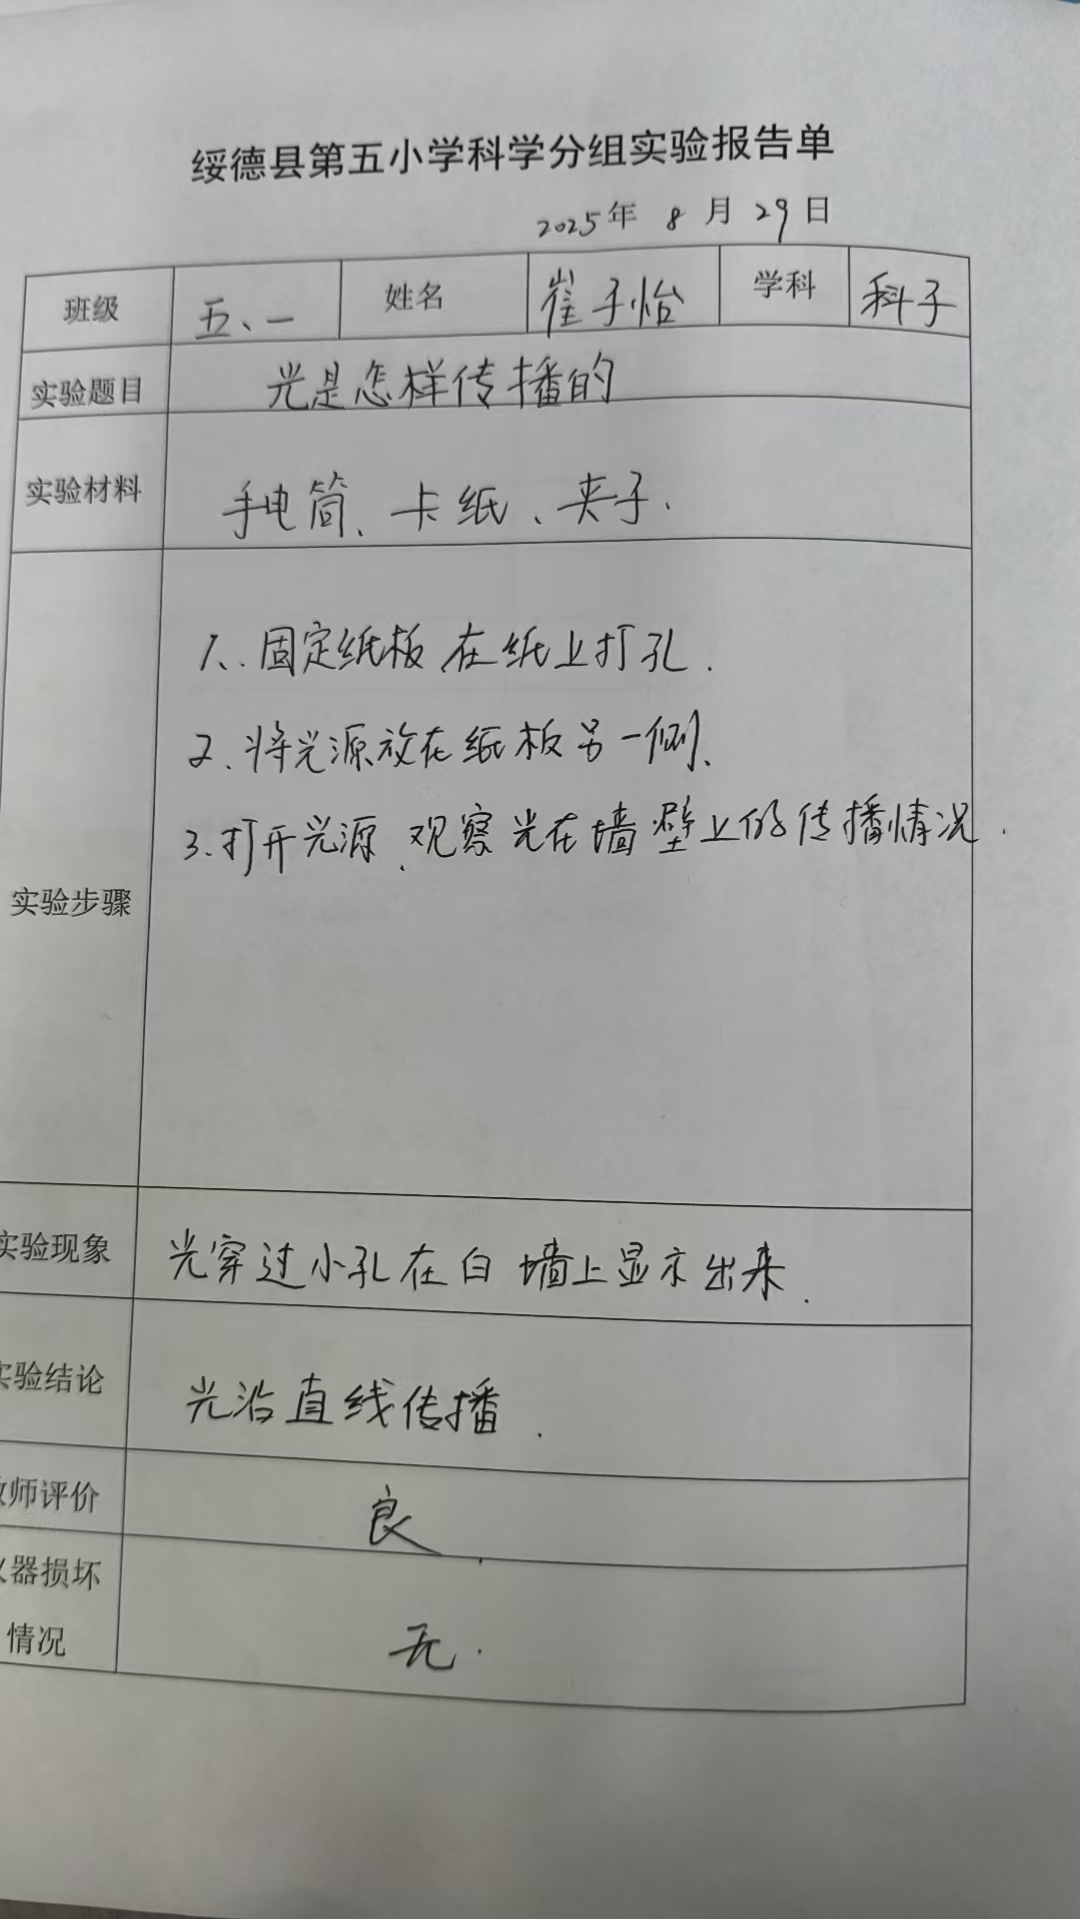 绥德县第五小学科学分组实验报告单
2025年 8 月 29 日
班级 五、一 姓名 崔子怡 学科 科子
实验题目 光是怎样传播的
实验材料 手电筒、卡纸、夹子.
1、.固定纸板,在纸上打孔.
2、将光源放在纸板另一侧、
3.打开光源、观察光在墙壁上的传播情况.
实验步骤
实验现象 光穿过小孔在白墙上显示出来.
实验结论 光沿直线传播.
教师评价 良.
仪器损坏
情况 无.